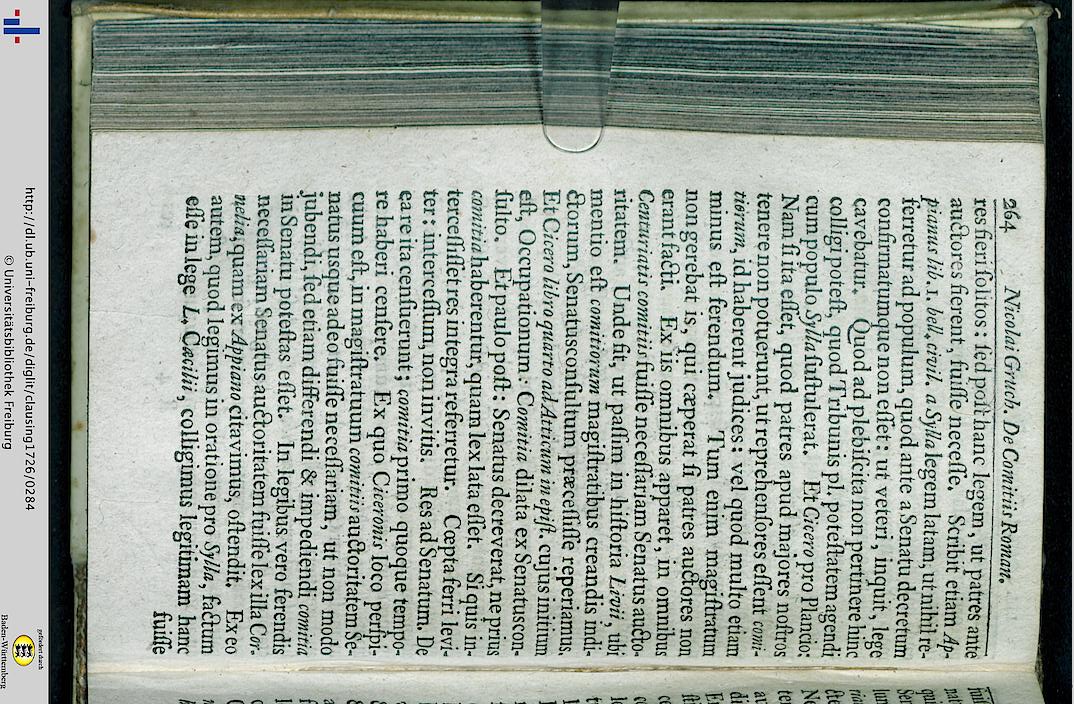 264 Nicolai Gruch. De Comitiis Roman.
res fieri solitos: sed post hanc legem, ut patres ante
auctores fierent, fuisse necesse. Scribit etiam Ap-
pianus lib. 1. bell. civil. a Sylla legem latam, ut nihil re-
ferretur ad populum, quod ante a Senatu decretum
confirmatumque non esset: ut veteri, inquit, lege
cavebatur. Quod ad plebiscita non pertinere hinc
colligi potest, quod Tribunis pl. potestatem agendi
cum populo Sylla sustulerat. Et Cicero pro Plancio:
Nam si ita esset, quod patres apud majores nostros
tenere non potuerunt, ut reprehensores essent comi-
tiorum, id haberent judices: vel quod multo etiam
minus est ferendum. Tum enim magistratum
non gerebat is, qui cæperat si patres auctores non
erant facti. Ex iis omnibus apparet, in omnibus
Centuriatis comitiis fuisse necessariam Senatus aucto-
ritatem. Unde fit, ut passim in historia Livii, ubi
mentio est comitiorum magistratibus creandis indi-
ctorum, Senatusconsultum præcessisse reperiamus.
Et Cicero libro quarto ad Atticum in epist. cujus initium
est, Occupationum: Comitia dilata ex Senatuscon-
sulto. Et paulo post: Senatus decreverat, ne prius
comitia haberentur, quam lex lata esset. Si quis in-
tercessisset res integra referretur. Cœpta ferri levi-
ter: intercessum, non invitis. Res ad Senatum. De
ea re ita censuerunt; comitia primo quoque tempo-
re haberi censere. Ex quo Ciceronis loco perspi-
cuum est, in magistratuum comitiis auctoritatem Se-
natus usque adeo fuisse necessariam, ut non modo
jubendi, sed etiam differendi & impediendi comitia
in Senatu potestas esset. In legibus vero ferendis
necessariam Senatus auctoritatem fuisse lex illa Cor-
nelia, quam ex Appiano citavimus, ostendit. Ex eo
autem, quod legimus in oratione pro Sylla, factum
esse in lege L. Cæcilii, colligimus legitimam hanc
fuisse
http://dl.ub.uni-freiburg.de/diglit/clausing1726/0284
© Universitätsbibliothek Freiburg
gefördert durch
Baden-Württemberg